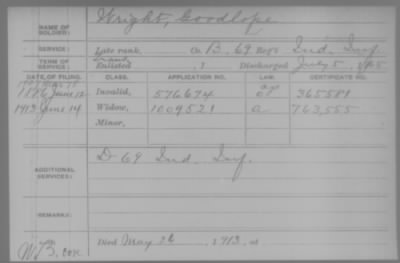 NAME OF SOLDIER: Wright, Goodlope
SERVICE: Late rank, Co. B, 69 Reg't Ind. Inf.
TERM OF SERVICE: Enlisted , 1 Discharged July 5, 1865
DATE OF FILING. CLASS. APPLICATION NO. LAW. CERTIFICATE NO.
1886 June 12 Invalid, 576674 365581
1913 June 14 Widow, 1009521 a 763,555
Minor,
ADDITIONAL SERVICES: D 69 Ind. Inf.
REMARKS:
Died May 26, 1913, at